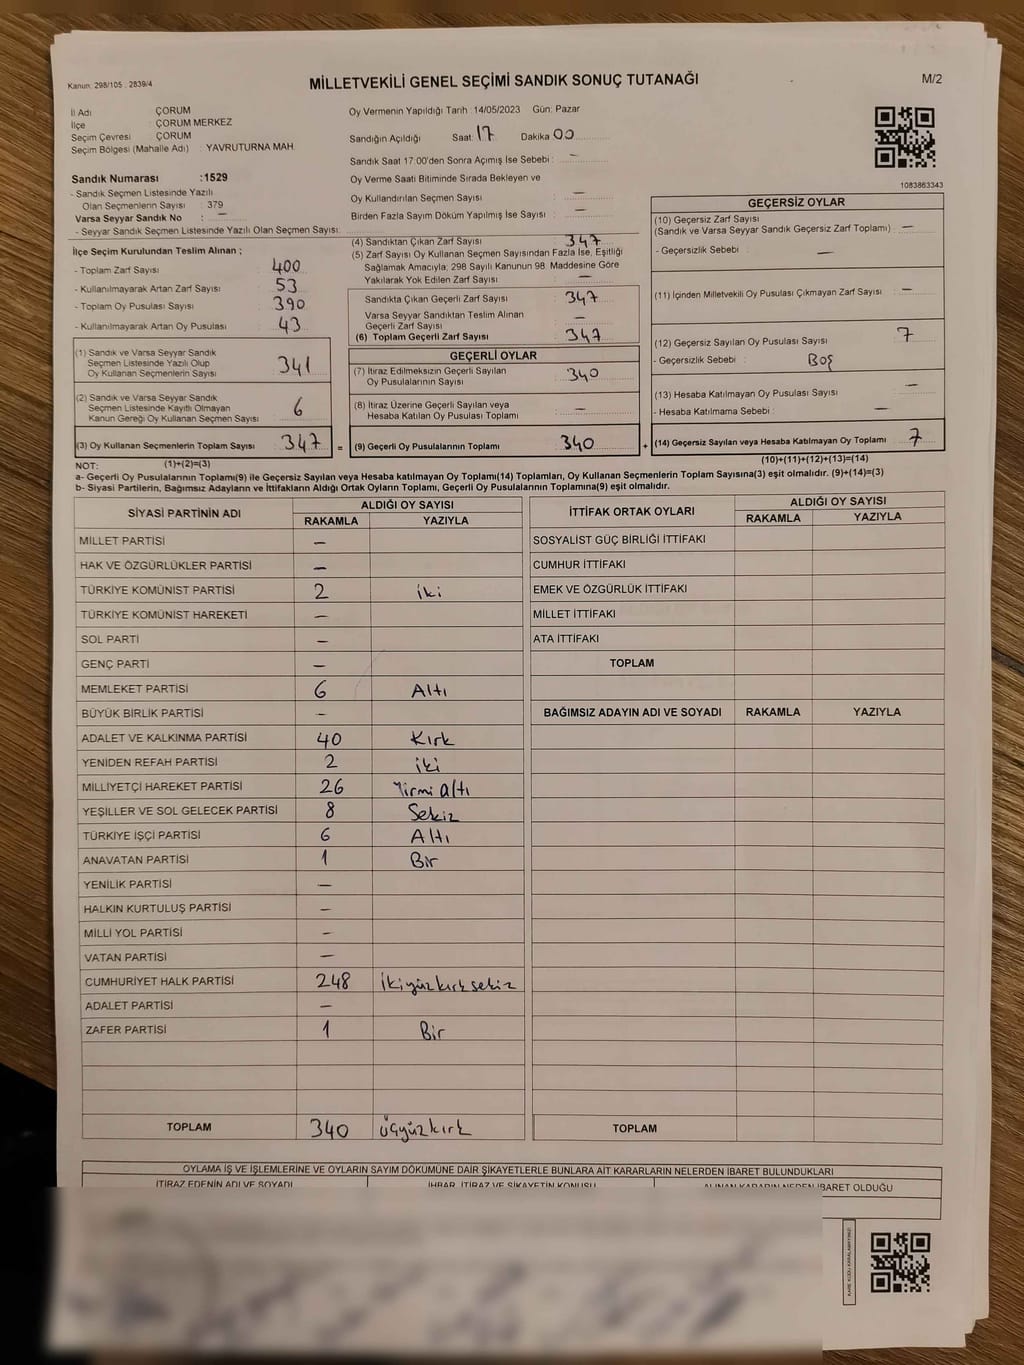 Kanun: 298/105 : 2839/4
MİLLETVEKİLİ GENEL SEÇİMİ SANDIK SONUÇ TUTANAĞI
M/2
İl Adı : ÇORUM
İlçe : ÇORUM MERKEZ
Seçim Çevresi : ÇORUM
Seçim Bölgesi (Mahalle Adı) : YAVRUTURNA MAH.
Oy Vermenin Yapıldığı Tarih :14/05/2023 Gün: Pazar
Sandığın Açıldığı Saat: 17 Dakika 00
Sandık Saat 17:00'den Sonra Açımış İse Sebebi : —
Sandık Numarası :1529
- Sandık Seçmen Listesinde Yazılı
Olan Seçmenlerin Sayısı : 379
Varsa Seyyar Sandık No : —
- Seyyar Sandık Seçmen Listesinde Yazılı Olan Seçmen Sayısı:
Oy Verme Saati Bitiminde Sırada Bekleyen ve
Oy Kullandırılan Seçmen Sayısı : —
Birden Fazla Sayım Döküm Yapılmış İse Sayısı : —
1083863343
İlçe Seçim Kurulundan Teslim Alınan ;
- Toplam Zarf Sayısı : 400
- Kullanılmayarak Artan Zarf Sayısı : 53
- Toplam Oy Pusulası Sayısı : 390
- Kullanılmayarak Artan Oy Pusulası : 43
(1) Sandık ve Varsa Seyyar Sandık
Seçmen Listesinde Yazılı Olup
Oy Kullanan Seçmenlerin Sayısı : 341
(2) Sandık ve Varsa Seyyar Sandık
Seçmen Listesinde Kayıtlı Olmayan
Kanun Gereği Oy Kullanan Seçmen Sayısı : 6
(3) Oy Kullanan Seçmenlerin Toplam Sayısı : 347 =
(4) Sandıktan Çıkan Zarf Sayısı : 347
(5) Zarf Sayısı Oy Kullanan Seçmen Sayısından Fazla İse, Eşitliği
Sağlamak Amacıyla; 298 Sayılı Kanunun 98. Maddesine Göre
Yakılarak Yok Edilen Zarf Sayısı : —
Sandıkta Çıkan Geçerli Zarf Sayısı : 347
Varsa Seyyar Sandıktan Teslim Alınan
Geçerli Zarf Sayısı : —
(6) Toplam Geçerli Zarf Sayısı : 347
GEÇERLİ OYLAR
(7) İtiraz Edilmeksizin Geçerli Sayılan
Oy Pusulalarının Sayısı : 340
(8) İtiraz Üzerine Geçerli Sayılan veya
Hesaba Katılan Oy Pusulası Toplamı : —
(9) Geçerli Oy Pusulalarının Toplamı : 340 +
GEÇERSİZ OYLAR
(10) Geçersiz Zarf Sayısı
(Sandık ve Varsa Seyyar Sandık Geçersiz Zarf Toplamı) : —
- Geçersizlik Sebebi : —
(11) İçinden Milletvekili Oy Pusulası Çıkmayan Zarf Sayısı : —
(12) Geçersiz Sayılan Oy Pusulası Sayısı : 7
- Geçersizlik Sebebi : Boş
(13) Hesaba Katılmayan Oy Pusulası Sayısı : —
- Hesaba Katılmama Sebebi : —
(14) Geçersiz Sayılan veya Hesaba Katılmayan Oy Toplamı : 7
NOT: (1)+(2)=(3)
(10)+(11)+(12)+(13)=(14)
a- Geçerli Oy Pusulalarının Toplamı(9) ile Geçersiz Sayılan veya Hesaba katılmayan Oy Toplamı(14) Toplamları, Oy Kullanan Seçmenlerin Toplam Sayısına(3) eşit olmalıdır. (9)+(14)=(3)
b- Siyasi Partilerin, Bağımsız Adayların ve İttifakların Aldığı Ortak Oyların Toplamı, Geçerli Oy Pusulalarının Toplamına(9) eşit olmalıdır.
SİYASİ PARTİNİN ADI
ALDIĞI OY SAYISI
RAKAMLA YAZIYLA
MİLLET PARTİSİ —
HAK VE ÖZGÜRLÜKLER PARTİSİ —
TÜRKİYE KOMÜNİST PARTİSİ 2 iki
TÜRKİYE KOMÜNİST HAREKETİ —
SOL PARTİ —
GENÇ PARTİ —
MEMLEKET PARTİSİ 6 Altı
BÜYÜK BİRLİK PARTİSİ —
ADALET VE KALKINMA PARTİSİ 40 Kırk
YENİDEN REFAH PARTİSİ 2 iki
MİLLİYETÇİ HAREKET PARTİSİ 26 Yirmi altı
YEŞİLLER VE SOL GELECEK PARTİSİ 8 Sekiz
TÜRKİYE İŞÇİ PARTİSİ 6 Altı
ANAVATAN PARTİSİ 1 Bir
YENİLİK PARTİSİ —
HALKIN KURTULUŞ PARTİSİ —
MİLLİ YOL PARTİSİ —
VATAN PARTİSİ —
CUMHURİYET HALK PARTİSİ 248 ikiyüzkırksekiz
ADALET PARTİSİ —
ZAFER PARTİSİ 1 Bir
TOPLAM 340 üçyüzkırk
İTTİFAK ORTAK OYLARI
ALDIĞI OY SAYISI
RAKAMLA YAZIYLA
SOSYALİST GÜÇ BİRLİĞİ İTTİFAKI
CUMHUR İTTİFAKI
EMEK VE ÖZGÜRLÜK İTTİFAKI
MİLLET İTTİFAKI
ATA İTTİFAKI
TOPLAM
BAĞIMSIZ ADAYIN ADI VE SOYADI RAKAMLA YAZIYLA
TOPLAM
OYLAMA İŞ VE İŞLEMLERİNE VE OYLARIN SAYIM DÖKÜMÜNE DAİR ŞİKAYETLERLE BUNLARA AİT KARARLARIN NELERDEN İBARET BULUNDUKLARI
İTİRAZ EDENİN ADI VE SOYADI
İHBAR, İTİRAZ VE ŞİKAYETİN KONUSU
ALINAN KARARIN NEDEN İBARET OLDUĞU